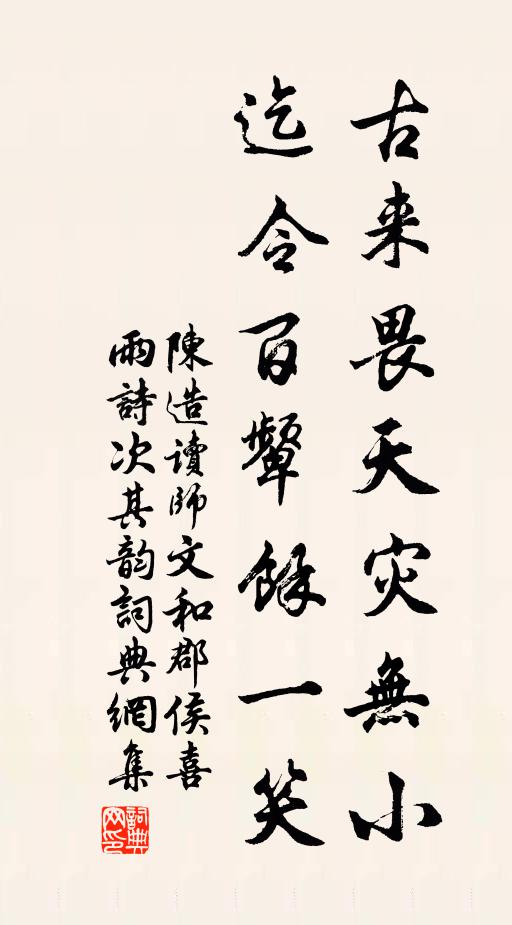 古来畏天灾無小
迄今百颦餘一笑
陳造讀師文和郡侯喜
雨詩次其韵詞典網集
詞典網印